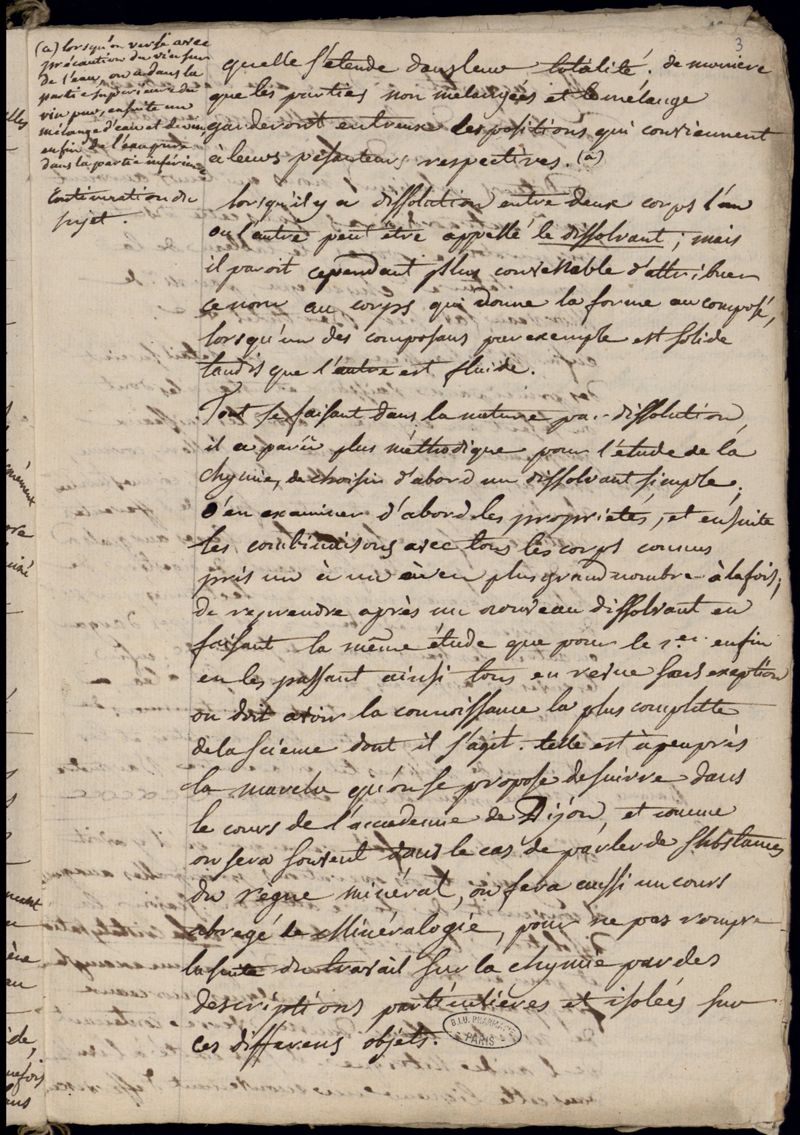 3
(a) lorsqu'on verse avec
précaution du vin sur
de l'eau, on a dans la
partie superieure du
vin pur, ensuite un
mélange d'eau et de vin
enfin de l'eau pure
dans la partie inférieure
quelle s'étende dans leur totalité. de maniere
que les parties non mélangées et le mélange
garderont entreux les positions qui conviennent
à leurs pésanteurs respectives. (a)
Continuation du
sujet.
lorsqu'il y a dissolution entre deux corps l'un
ou l'autre peut être appellé le dissolvant; mais
il paroit cependant plus convenable d'attribuer
ce nom au corps qui donne la forme au composé,
lorsqu'un des composans par exemple est solide
tandis que l'autre est fluide.
Tout se faisant dans la nature par dissolution,
il a parû plus méthodique pour l'étude de la
chymie, de choisir d'abord un dissolvant simple;
d'en examiner d'abord les propriétés, et ensuite
les combinaisons avec tous les corps connus
pris un à un ou en plus grand nombre à la fois;
de reprendre après un nouveau dissolvant en
faisant la même étude que pour le 1.er enfin
en les passant ainsi tous en revue sans exeption
on doit avoir la connoissance la plus complette
de la science dont il s'agit. telle est à peu près
la marche qu'on se propose de suivre dans
le cours de l'académie de Dijon, et comme
on sera souvent dans le cas de parler de substances
du règne minéral, on fera aussi un cours
abregé de Minéralogie, pour ne pas rompre
la suite du travail sur la chymie par des
descriptions particulières et isolées sur
ces differens objets.
B.I.U. PHARMACIE
PARIS